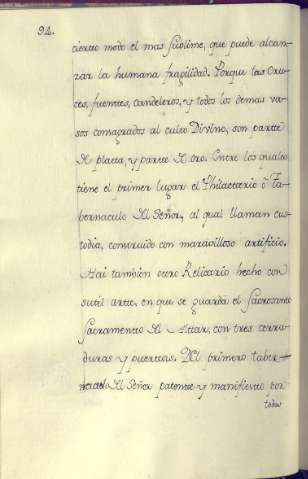 92.
cierto modo el mas sublime, que puede alcan-
zar la humana fragilidad. Porque las Cru-
ces, fuentes, candeleros, y todos los demas va-
sos consagrados al culto Divino, son parte
de plata, y parte de oro. Entre los quales
tiene el primer lugar el Philacterio ò Ta-
bernaculo del Señor, al qual llaman cus-
todia, construido con maravilloso artificio.
Hai tambien otro Relicario hecho con
sutil arte, en que se guarda el Sacrosanto
Sacramento del Altar, con tres cerra-
duras y puertas. Del primero taber-
naculo del Señor patente y manifiesto por
todas